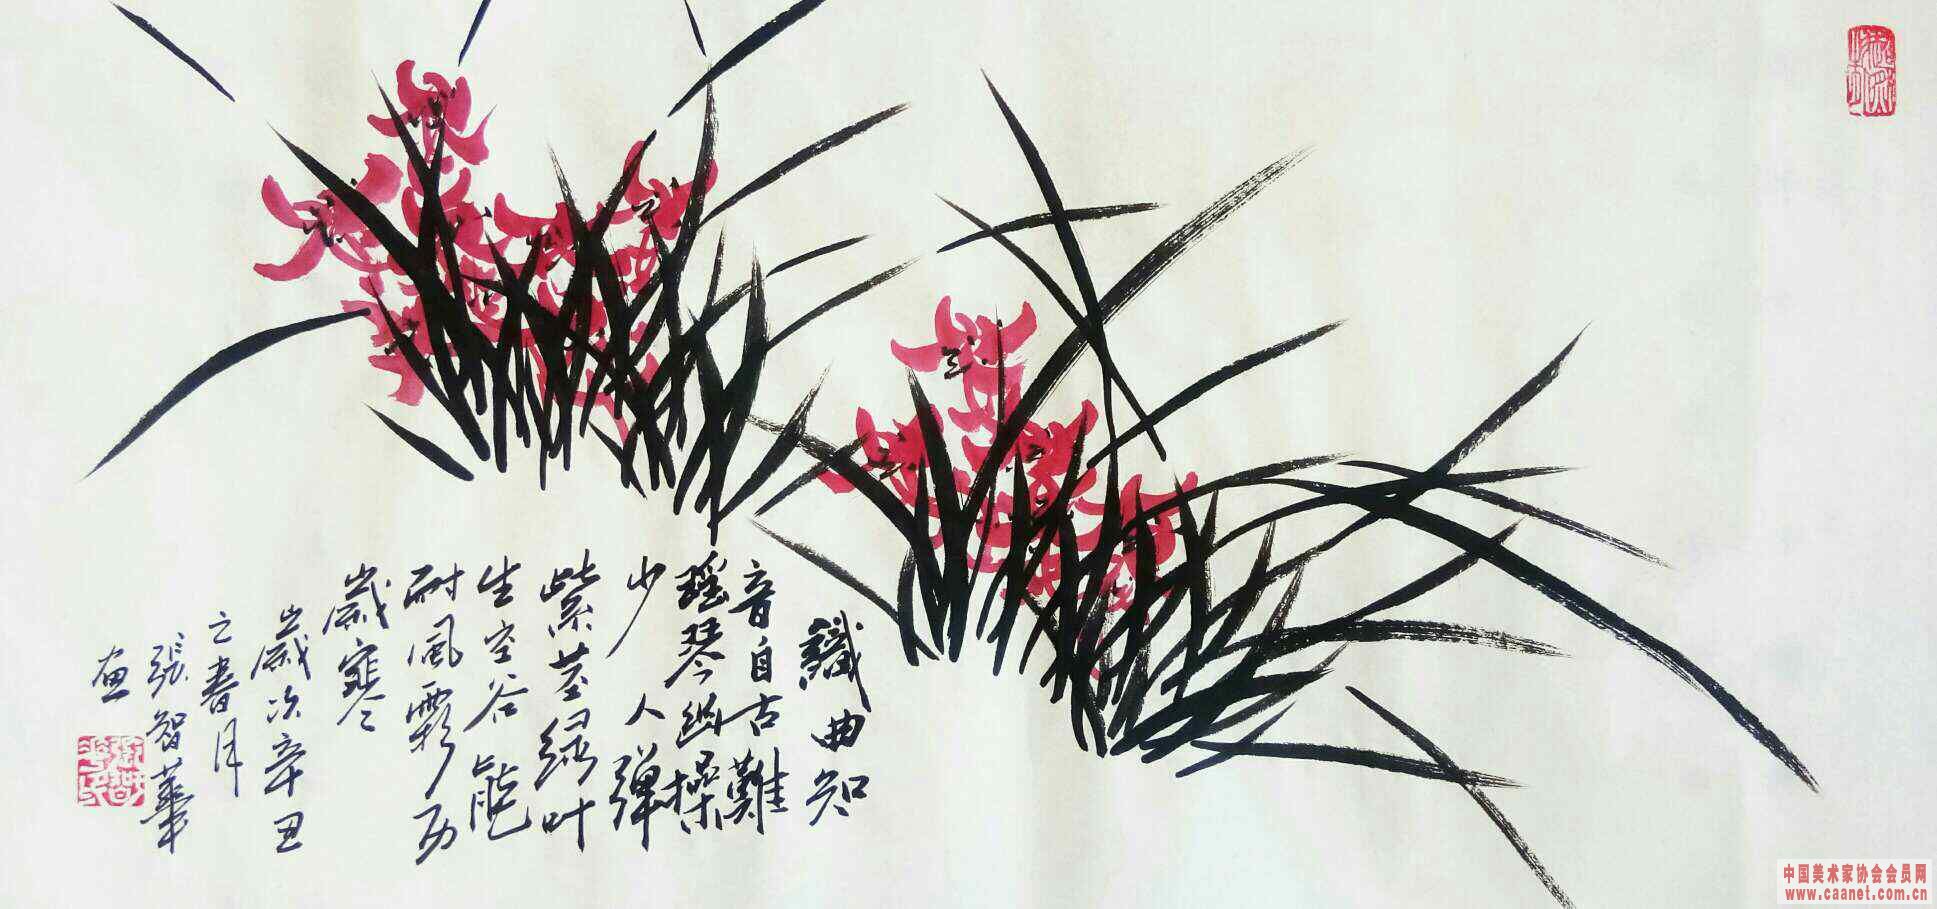 纖曲知
音自古難
瑤琴幽操
少人彈
紫莖绿叶
生空谷能
耐風霜历
歲寒
歲次辛丑
之春月
張智華
画
中国美术家协会会员网
www.caanet.com.cn